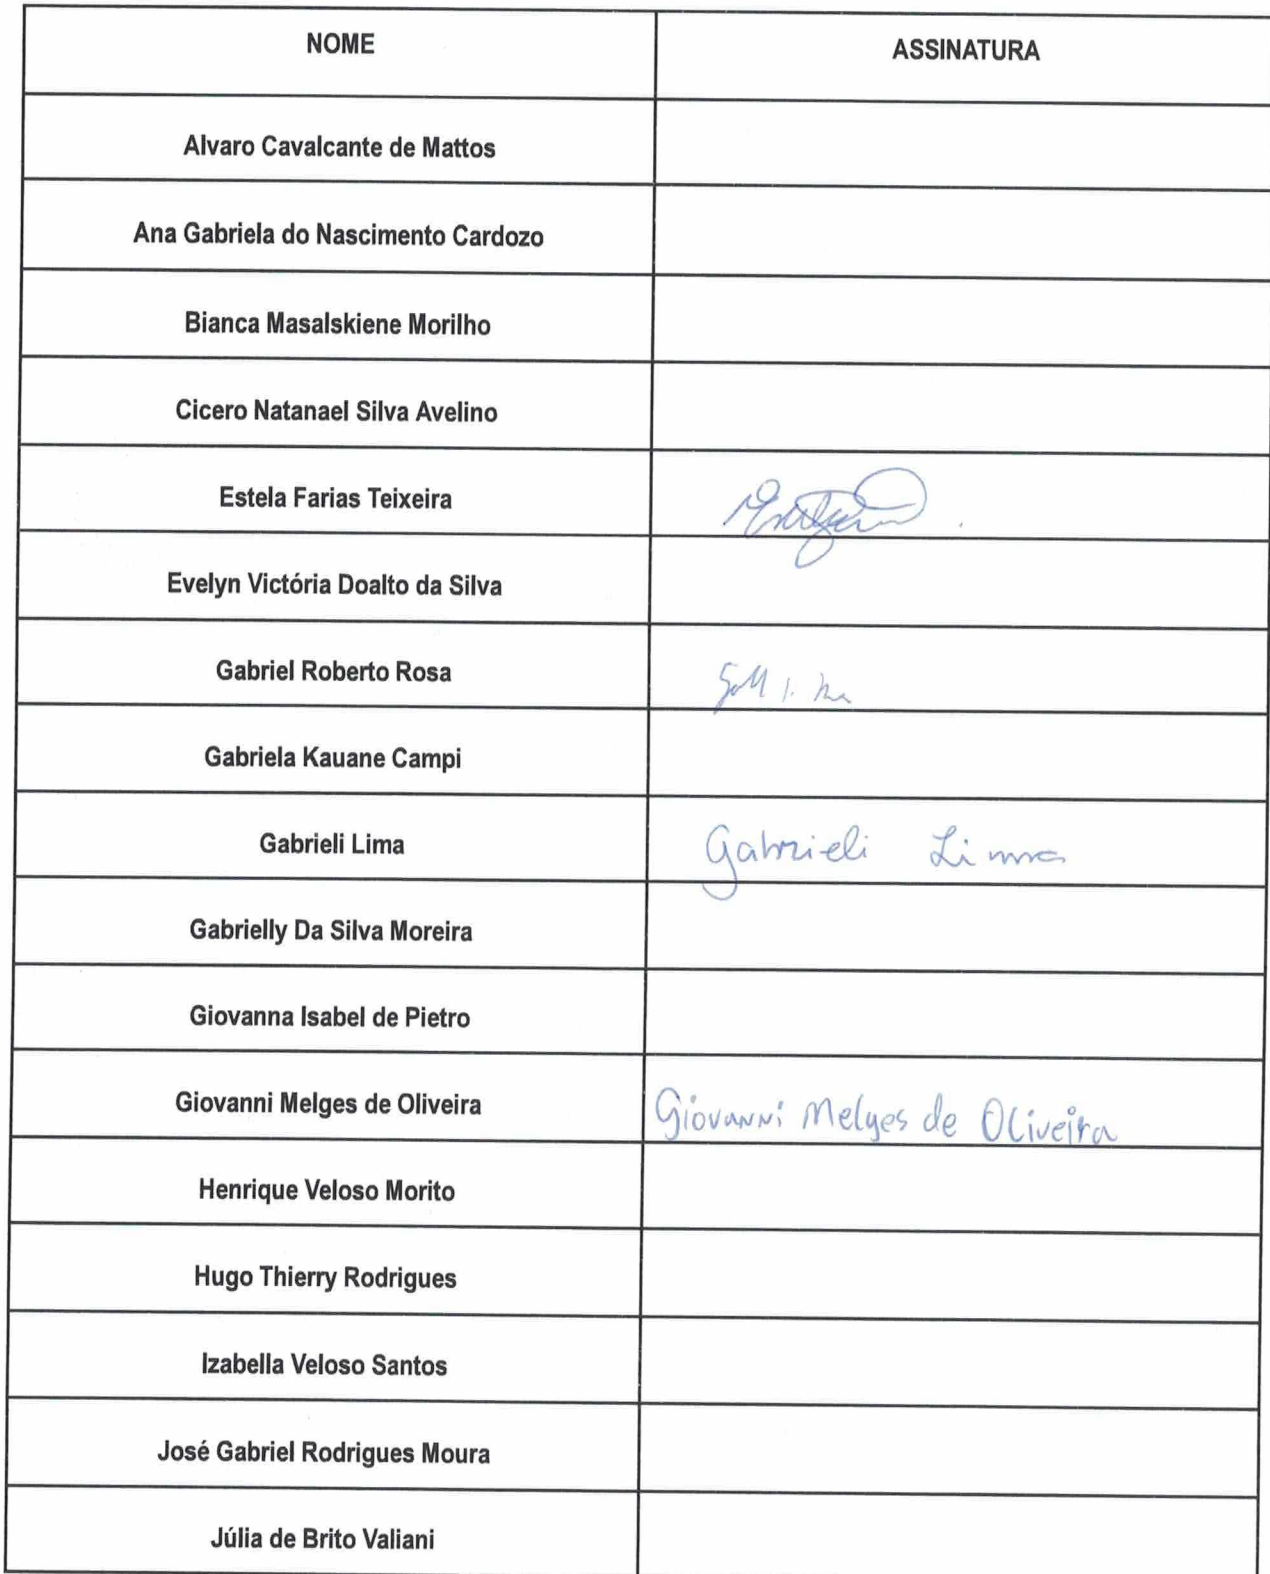 NOME ASSINATURA
Alvaro Cavalcante de Mattos
Ana Gabriela do Nascimento Cardozo
Bianca Masalskiene Morilho
Cicero Natanael Silva Avelino
Estela Farias Teixeira
Evelyn Victória Doalto da Silva
Gabriel Roberto Rosa
Gabriela Kauane Campi
Gabrieli Lima Gabrieli Lima
Gabrielly Da Silva Moreira
Giovanna Isabel de Pietro
Giovanni Melges de Oliveira Giovanni Melges de Oliveira
Henrique Veloso Morito
Hugo Thierry Rodrigues
Izabella Veloso Santos
José Gabriel Rodrigues Moura
Júlia de Brito Valiani